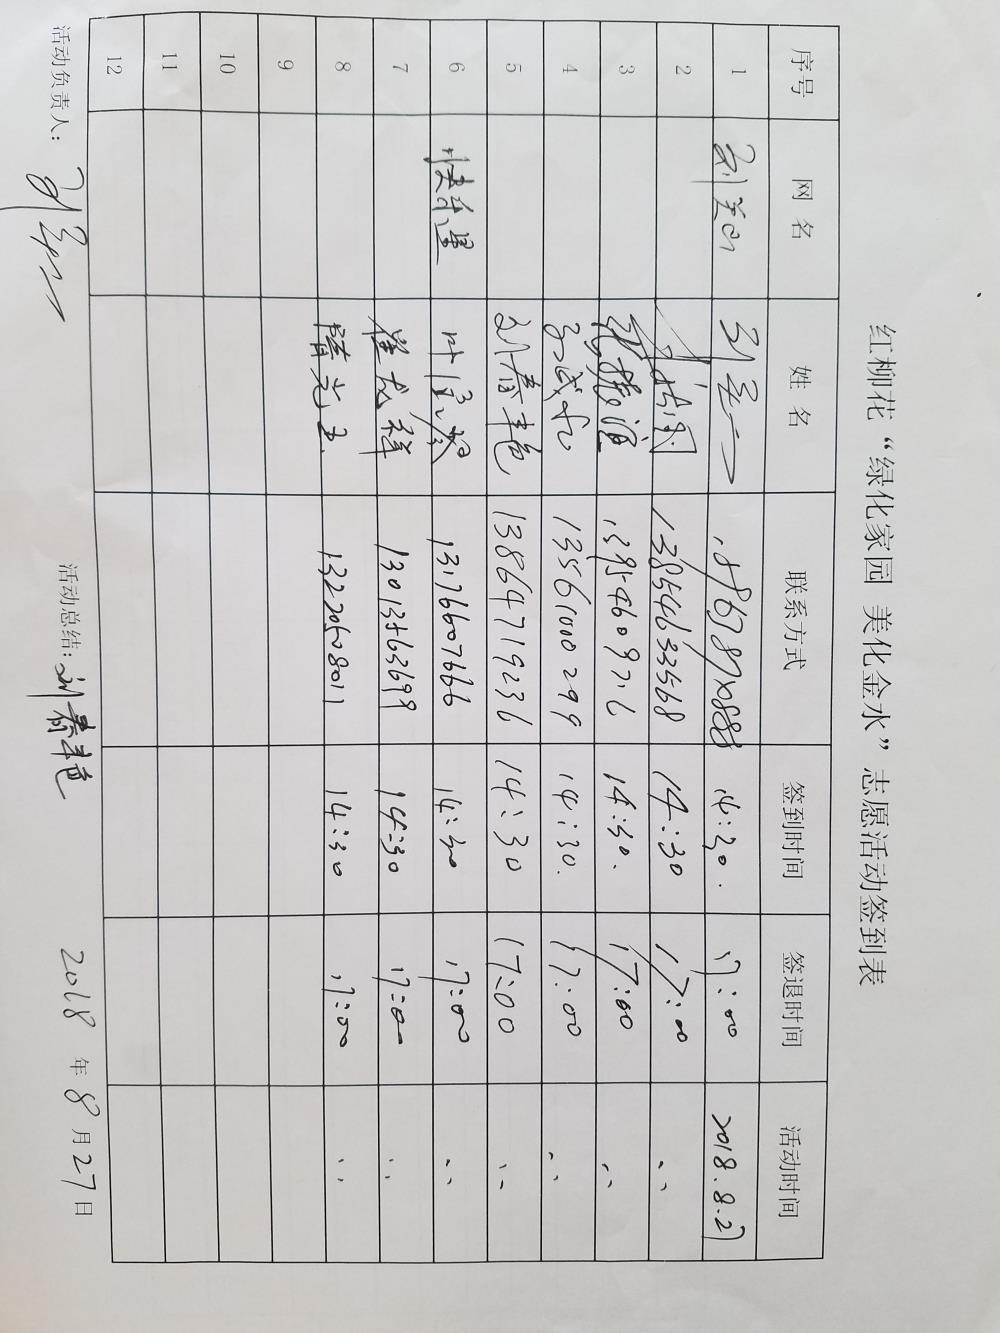 红柳花“绿化家园 美化金水”志愿活动签到表
序号 网名 姓名 联系方式 签到时间 签退时间 活动时间
1 14:30. 17:00 2018.8.27
2 13854633568 14:30 17:00 〃
3 13954609716 14:30. 17:00 〃
4 13561000299 14:30. 17:00 〃
5 刘春艳 13864719236 14:30 17:00 〃
6 快乐星 13176607666 14:30 17:00 〃
7 崔龙祥 13013563699 14:30 17:00 〃
8 隋光玉 13220508011 14:30 17:00 〃
9
10
11
12
活动负责人: 活动总结:刘春艳 2018年8月27日